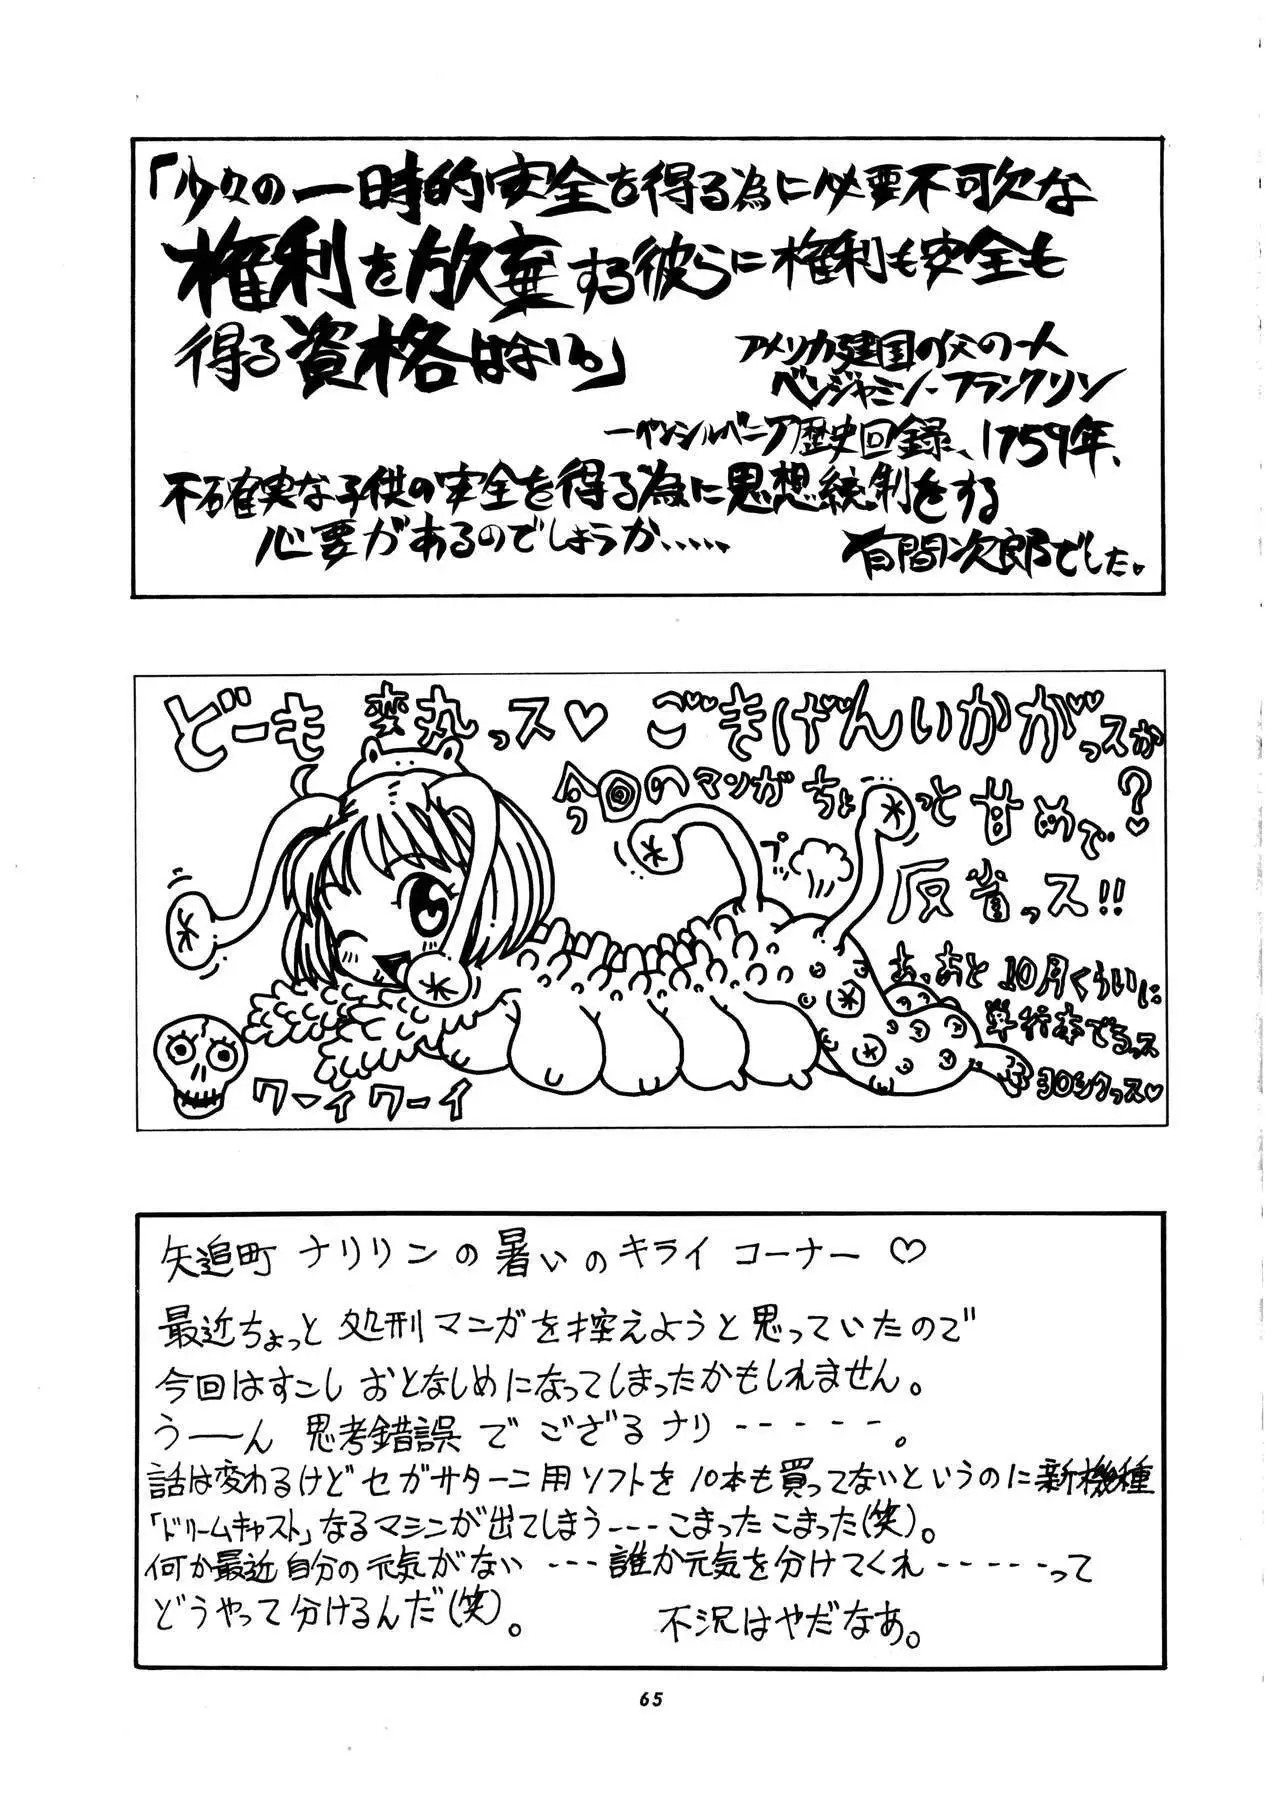 「少々の一時的安全を得る為に必要不可欠な
権利を放棄する彼らに権利も安全も
得る資格はない。」
アメリカ建国の父の一人
ベンジャミン・フランクリン
ーペンシルベニア歴史回録、1759年、
不確実な子供の安全を得る為に思想統制をする
必要があるのでしょうか.....
有間次郎でした。
どーも 変丸っス♡ ごきげんいかがっスか?
今回のマンガちょっと甘めで
反省っス!!
プッ
あ、あと10月くらいに
単行本でるっス
ヨロシクっス♡
ワーイワーイ
矢追町 ナリリンの暑いのキライ コーナー ♡
最近ちょっと処刑マンガを控えようと思っていたので
今回はすこしおとなしめになってしまったかもしれません。
うーーん 思考錯誤で ござるナリ -----。
話は変わるけど セガサターン用ソフトを10本も買ってないというのに新機種
「ドリームキャスト」なるマシンが出てしまう---こまったこまった(笑)。
何か最近自分の元気がない --- 誰か元気を分けてくれ-----って
どうやって分けるんだ(笑)。 不況はやだなあ。
65